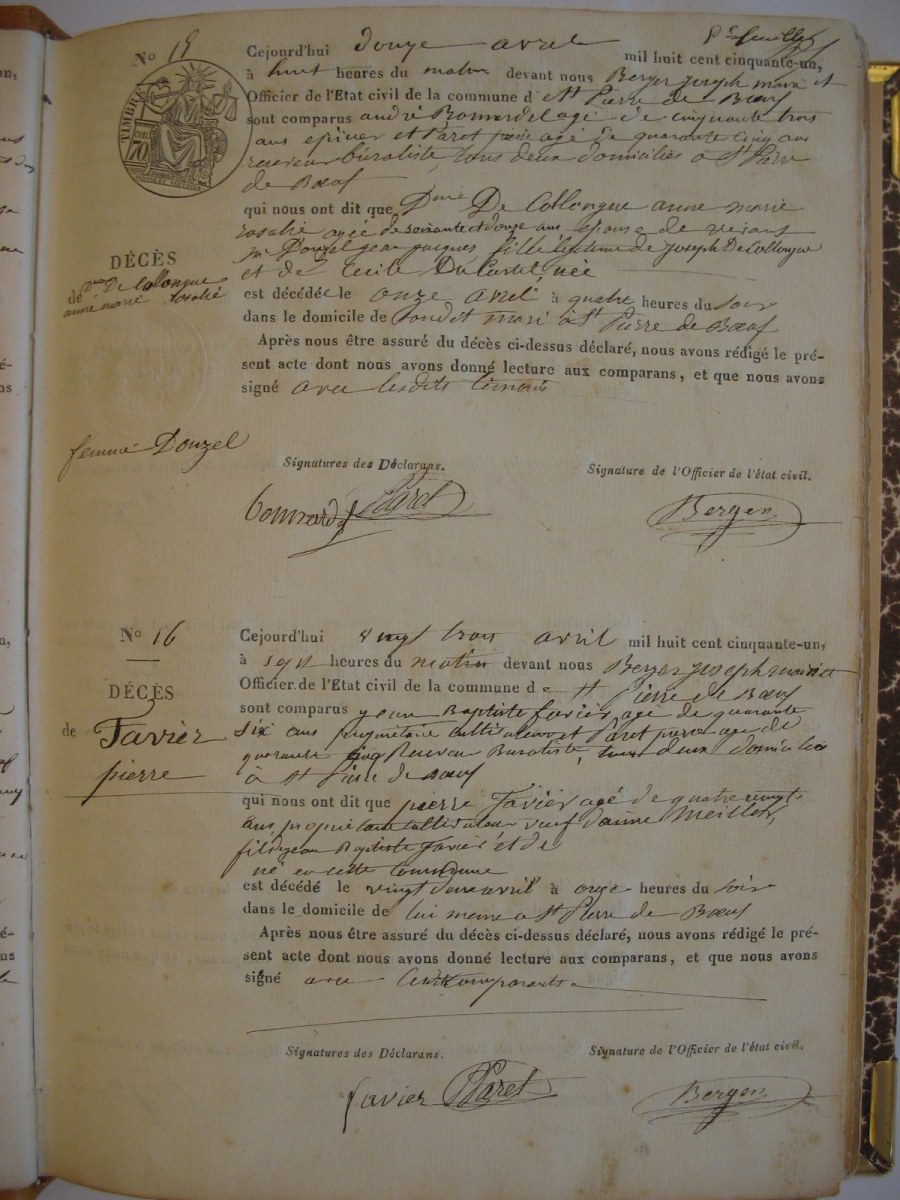 8e feuillet
No 15
Cejourd'hui douze avril mil huit cent cinquante-un,
à huit heures du matin devant nous Berger joseph maire et
Officier de l'Etat civil de la commune d e St Pierre de Bœuf
sont comparus andré Bonnard agé de cinquante trois
ans epicier et Paret pierre agé de quarante cinq ans
receveur buraliste, tous deux domiciliés à St Pierre
de Bœuf
TIMBRE
70
qui nous ont dit que Dme De Collongue anne marie
rosalie agée de soixante et douze ans épouse de
mr Douzel jean jacques fille légitime de joseph De Collongue
et de Cecile Du Castel, née
DÉCÈS
de Dme De Collongue
anne marie rosalie
femme Douzel
est décédée le onze avril à quatre heures du soir
dans le domicile de son dit mari à St Pierre de Bœuf
Après nous être assuré du décès ci-dessus déclaré, nous avons rédigé le pré-
sent acte dont nous avons donné lecture aux comparans, et que nous avons
signé avec lesdits témoins
Signatures des Déclarans.
Signature de l'Officier de l'état civil.
bonnard Paret
Berger
No 16
DÉCÈS
de Favier
pierre
Cejourd'hui vingt trois avril mil huit cent cinquante-un,
à sept heures du matin devant nous Berger joseph maire et
Officier de l'Etat civil de la commune d e St Pierre de Bœuf
sont comparus jean Baptiste favier agé de quarante
six ans propriétaire cultivateur et Paret pierre agé de
quarante cinq Receveur Buraliste, tous deux domiciliés
à St Pierre de Bœuf
qui nous ont dit que pierre Favier agé de quatre vingt
ans, propriétaire cultivateur veuf danne Meiller,
fils de jean Baptiste favier et de
né en cette commune
est décédé le vingt deux avril à onze heures du soir
dans le domicile de lui meme a St Pierre de Bœuf
Après nous être assuré du décès ci-dessus déclaré, nous avons rédigé le pré-
sent acte dont nous avons donné lecture aux comparans, et que nous avons
signé avec les comparants.
Signatures des Déclarans.
Signature de l'Officier de l'état civil.
favier Paret
Berger